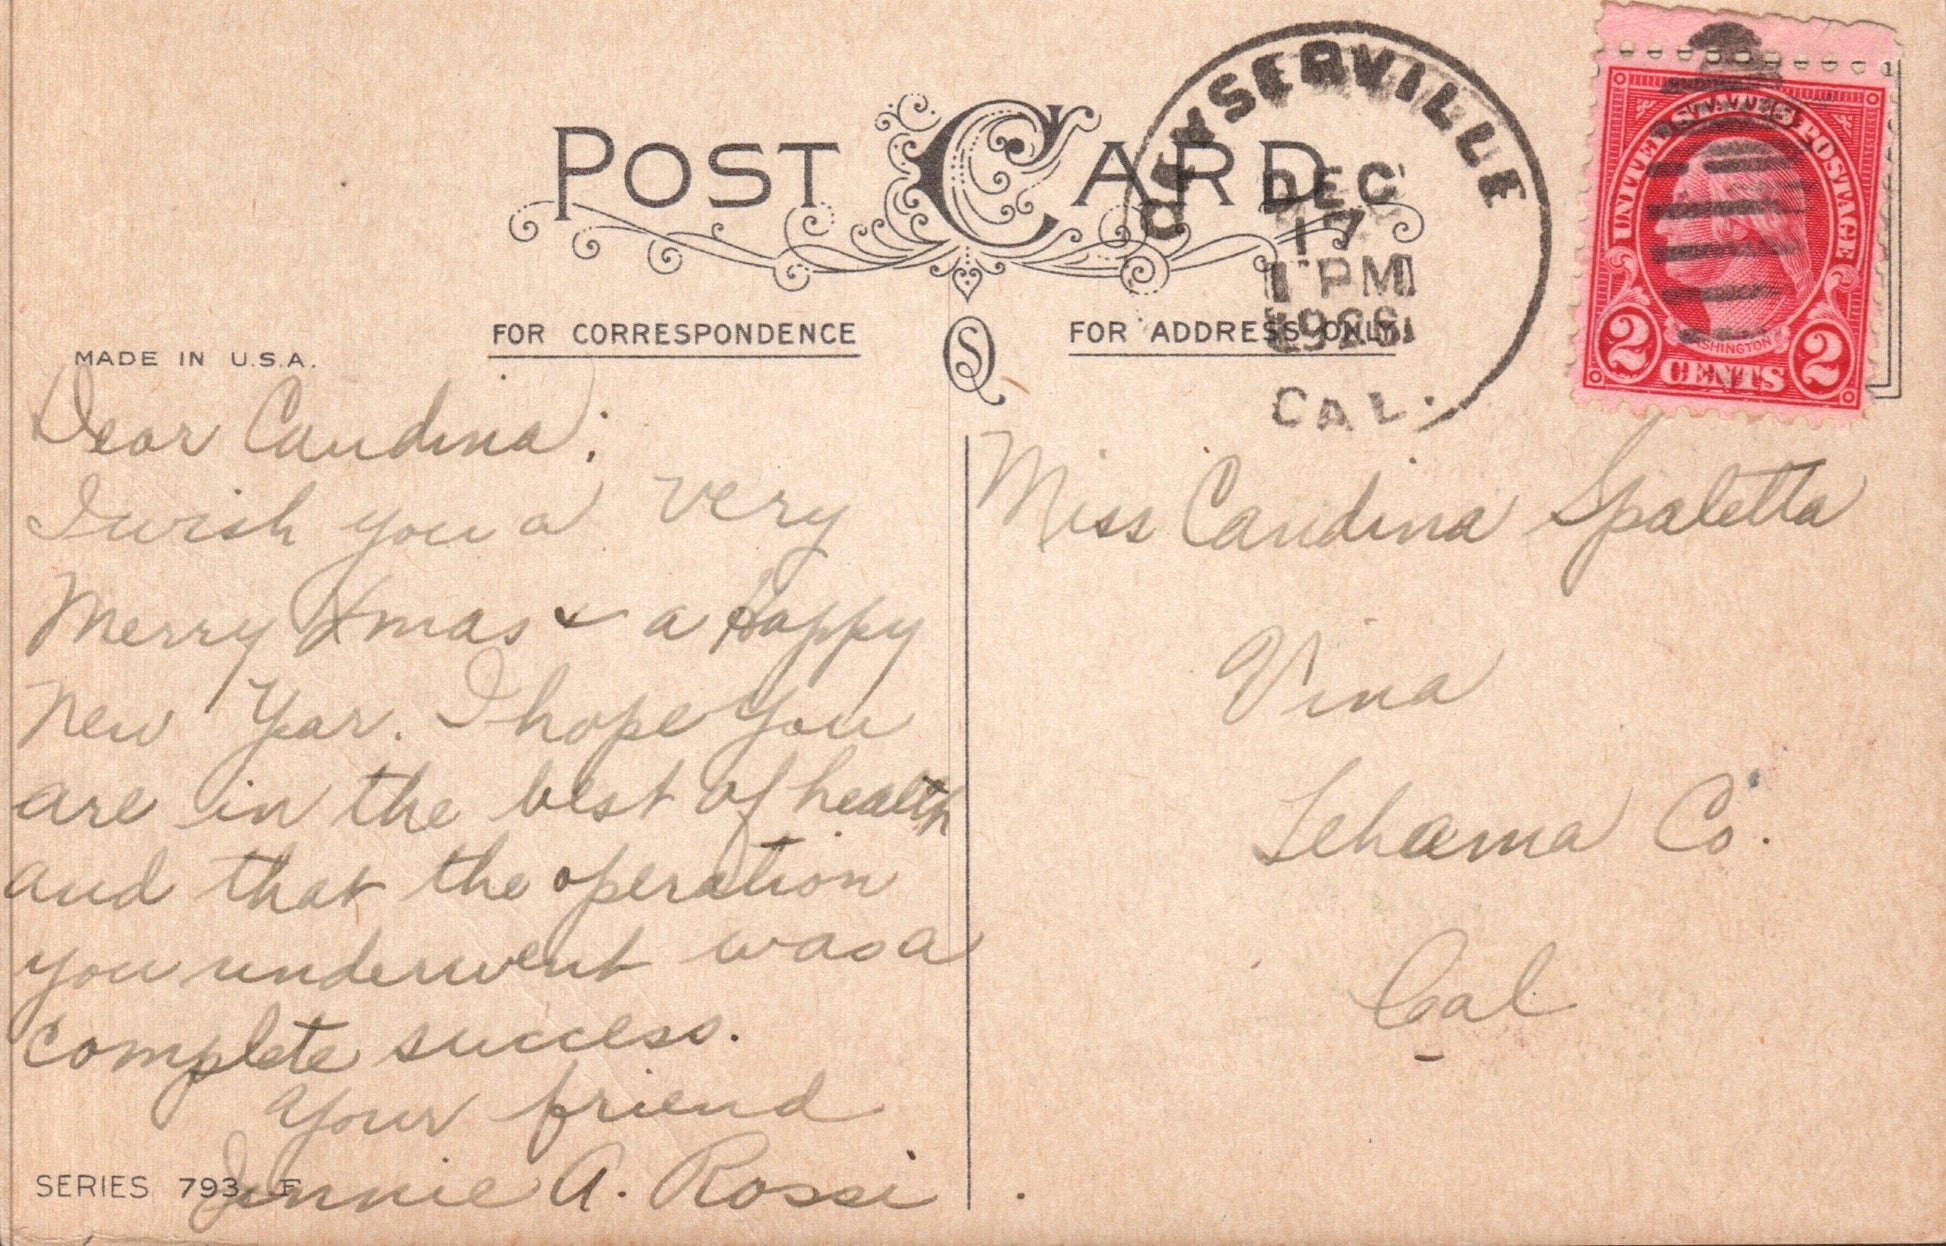 POST CARD
GEYSERVILLE
DEC
17
1 PM
CAL.
UNITED STATES POSTAGE
WASHINGTON
2 CENTS 2
1
MADE IN U.S.A.
FOR CORRESPONDENCE
SQ
FOR ADDRESS ONLY
Dear Candina:
I wish you a very
Merry Xmas & a Happy
New Year. I hope you
are in the best of health
and that the operation
you underwent was a
complete success.
Your friend
Jennie A. Rossi
SERIES 793 F
Miss Candina Spaletta
Vina
Tehama Co.
Cal